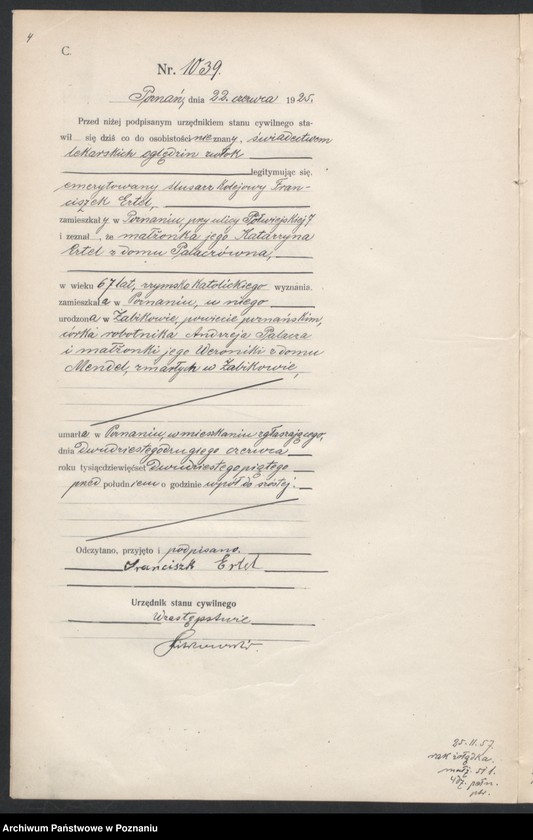 4
C.
Nr. 1039.
Poznań, dnia 22. czerwca 1925.
Przed niżej podpisanym urzędnikiem stanu cywilnego sta-
wił się dziś co do osobistości nieznany, świadectwem
lekarskich oględzin zwłok
legitymując się.
emerytowany ślusarz kolejowy Fran-
ciszek Ertel,
zamieszkały w Poznaniu, przy ulicy Półwiejskiej 7
i zeznał, że małżonka jego Katarzyna
Ertel z domu Palaczówna,
w wieku 67 lat, rzymsko katolickiego wyznania.
zamieszkała w Poznaniu, u niego
urodzona w Żabikowie, powiecie poznańskim,
córka robotnika Andrzeja Palacza
i małżonki jego Weroniki z domu
Mendel, zmarłych w Żabikowie,
umarła w Poznaniu, w mieszkaniu zgłaszającego,
dnia Dwudziestego drugiego czerwca
roku tysiącdziewięćset Dwudziestego piątego
przed południem o godzinie wpół do szóstej.
Odczytano, przyjęto i podpisano.
Franciszk Ertel
Urzędnik stanu cywilnego
W zastępstwie
25.11.57
rak żołądka.
małż. 51 l.
Archiwum Państwowe w Poznaniu